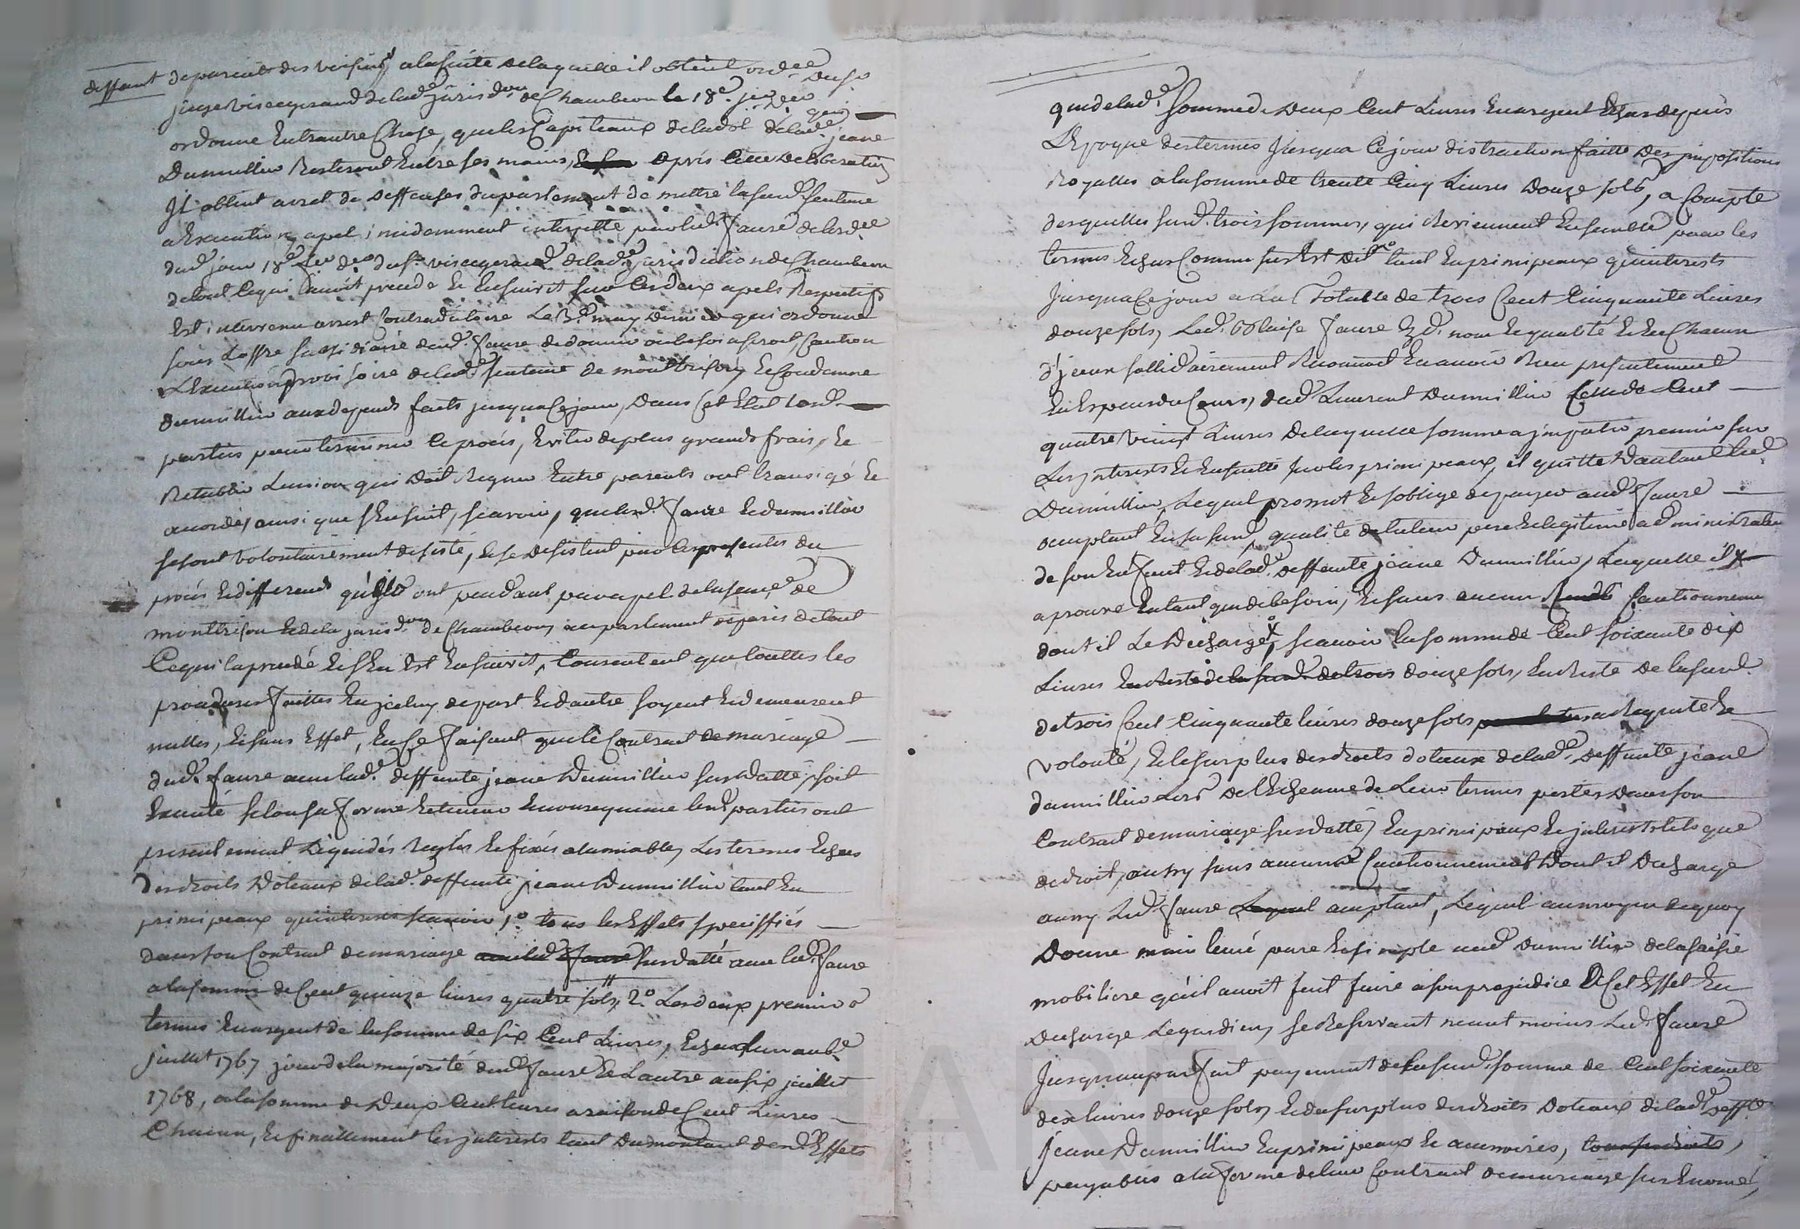 deffaut de parents des voisins, a la suitte de laquelle il obtient ord.ce du sr
juge viseregerand de lad.e jurisd.on de Chambeon le 18.e Xbre qui
ordonne entrautre Chose, que les Capiteaux de la dot de lad.e jeane
Dumillier Resteront Entre ses mains, aprés cette deliberation
Il obtient arret de deffenses du parlement de mettre la susd.e sentence
a Execution, apel incidamment interjetté par led. faure de lord.ce
dud. jour 18.e du sr viseregerand de lad.e jurisdiction de Chambeon
de tout Ce qui sen est suivit sur les deux apels Respectifs
Est intervenu arret Contradictoire Le may dernier qui ordonne
sous Loffre subsidiaire dud. faure de donner Caution
LExecution provisoire de lad.e sentence de montbrison, et Condamne
dumillier aux depends faits jusqua Ce jour, Dans Cet Etat lesd.
parties pour terminer le procés, Eviter de plus grands frais, Et
Retablir Lunion qui doit Regner Entre parents ont transigé Et
accordé, ainsi que sEnsuit, scavoir, que lesd. faure Et dumillier
se sont volontairement desisté, Et se desistent par les presentes du
procés Et differends qu'ils ont pendant par apel de la senc.e de
montbrison Et de la jurisd.on de Chambeon, au parlement de paris de tout
Ce qui la precedé Et sEn Est Ensuivit, Consentent que touttes les
procedures faittes En jceluy de part Et dautre soyent Et demeurent
nulles, Et sans Effet, En Ce faisant que le Contract de mariage
dud. faure avec lad.e deffunte jeane Dumillier susdatté, soit
Executé selon sa forme Et teneur En consequence lesd. parties ont
presentement Liquidés Reglés Et fixés alamiable, Les termes Echus
des droits Doteaux de lad.e deffunte jeane Dumillier tant En
principeaux quinterests scavoir 1.o tous les Effets speciffiés
dans son Contract de mariage avec led. faure susdatté avec led. faure
a la somme de Cent quinze livres quatre sols, 2.o Les deux premiers
termes En argent de la somme de six Cent Livres, Echus lun au
juillet 1767 jour de la majorité dud. faure Et Lautre au six juillet
1768, a la somme de Deux Cent livres a raison de Cent Livres
Chacun, Et finallement les jnterests tant du montant desd. Effets
que de lad.e somme de Deux Cent Livres En argent Echus depuis
LEpoque des termes Jusqua Ce jour distraction faitte des jmpositions
Royalles a la somme de trente Cinq Livres Douze sols, a Compte
desquelles susd. trois sommes, qui Reviennent Ensemble pour les
termes Echus Comme susEst Dit tant En principeaux quinterests
Jusqua Ce jour a La Totalle de trois Cent Cinquante Livres
douze sols, Led. Blaise faure Esd. nom Et qualité Et Chacun
d'jceux sollidairement Reconnoit En avoir Reçu presentement
En Especes du Cours, dud. Laurent Dumillier Celle de Cent
quatre vingt Livres De laquelle somme a jmputer premier sur
Les jnterests Et Ensuitte sur les principeaux, il quitte Dautant led.
Dumillier, Lequel promet Et soblige de payer aud. faure
acceptant En sa susd. qualité de tuteur pere Et legitime administrateur
de son Enfant Et de lad.e deffunte jeane Dumillier, Laquelle il
aprouve Entant que de besoin, Et sans aucun Cautionnement
dont il Le Decharge, scavoir la somme de Cent soixante dix
Livres En Reste de la susd. de trois douze sols, En Reste de la susd.
de trois Cent Cinquante livres douze sols, a sa Requete Et
volonté, Et le surplus des droits doteaux de lad.e Deffunte jeane
dumillier Lors de LEcheance de Leur termes portés Dans son
Contract de mariage susdatté, En principeaux Et jnterests tels que
de droit, aussy sans aucun Cautionnement Dont il Decharge
aussy Led. faure Lequel acceptant, Lequel au moyen de quoy
Donne main levée pure Et simple aud. Dumillier de la saisie
mobiliere qu'il avoit fait faire a son prejudice a Cet Effet En
Decharge Le gardien, se Reservant neant moins Led. faure
Jusquau parfait payement de la susd. somme de Cent soixante
dix livres douze sols, Et du surplus des droits Doteaux de lad.e deff.te
jeane Dumillier En principeaux Et accessoires, tous ses droits,
payables a la forme de leur Contract de mariage sus Enoncé,